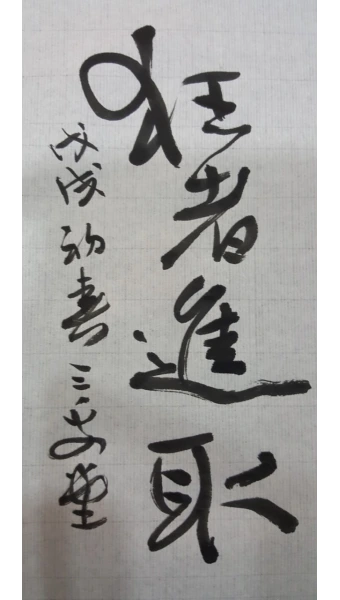 狂者進取
戊戌初春三安堂